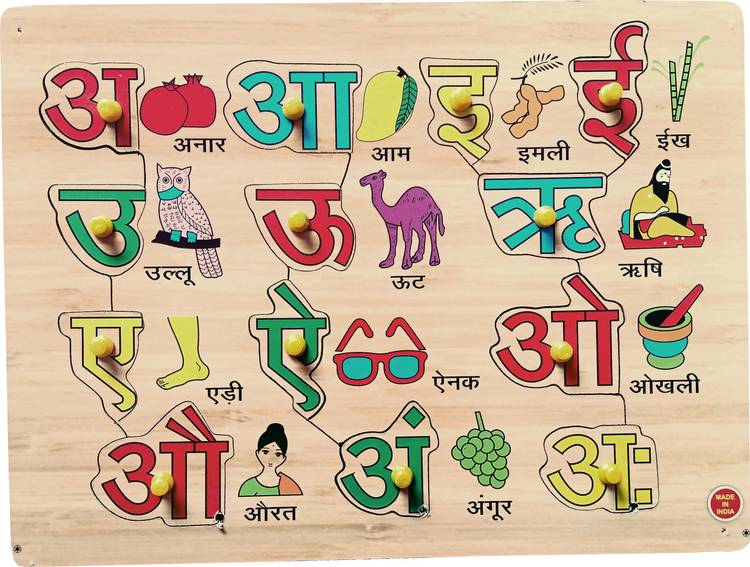 अ
अनार
आ
आम
इ
इमली
ई
ईख
उ
उल्लू
ऊ
ऊट
ऋ
ऋषि
ए
एड़ी
ऐ
ऐनक
ओ
ओखली
औ
औरत
अं
अंगूर
अः
MADE
IN
INDIA